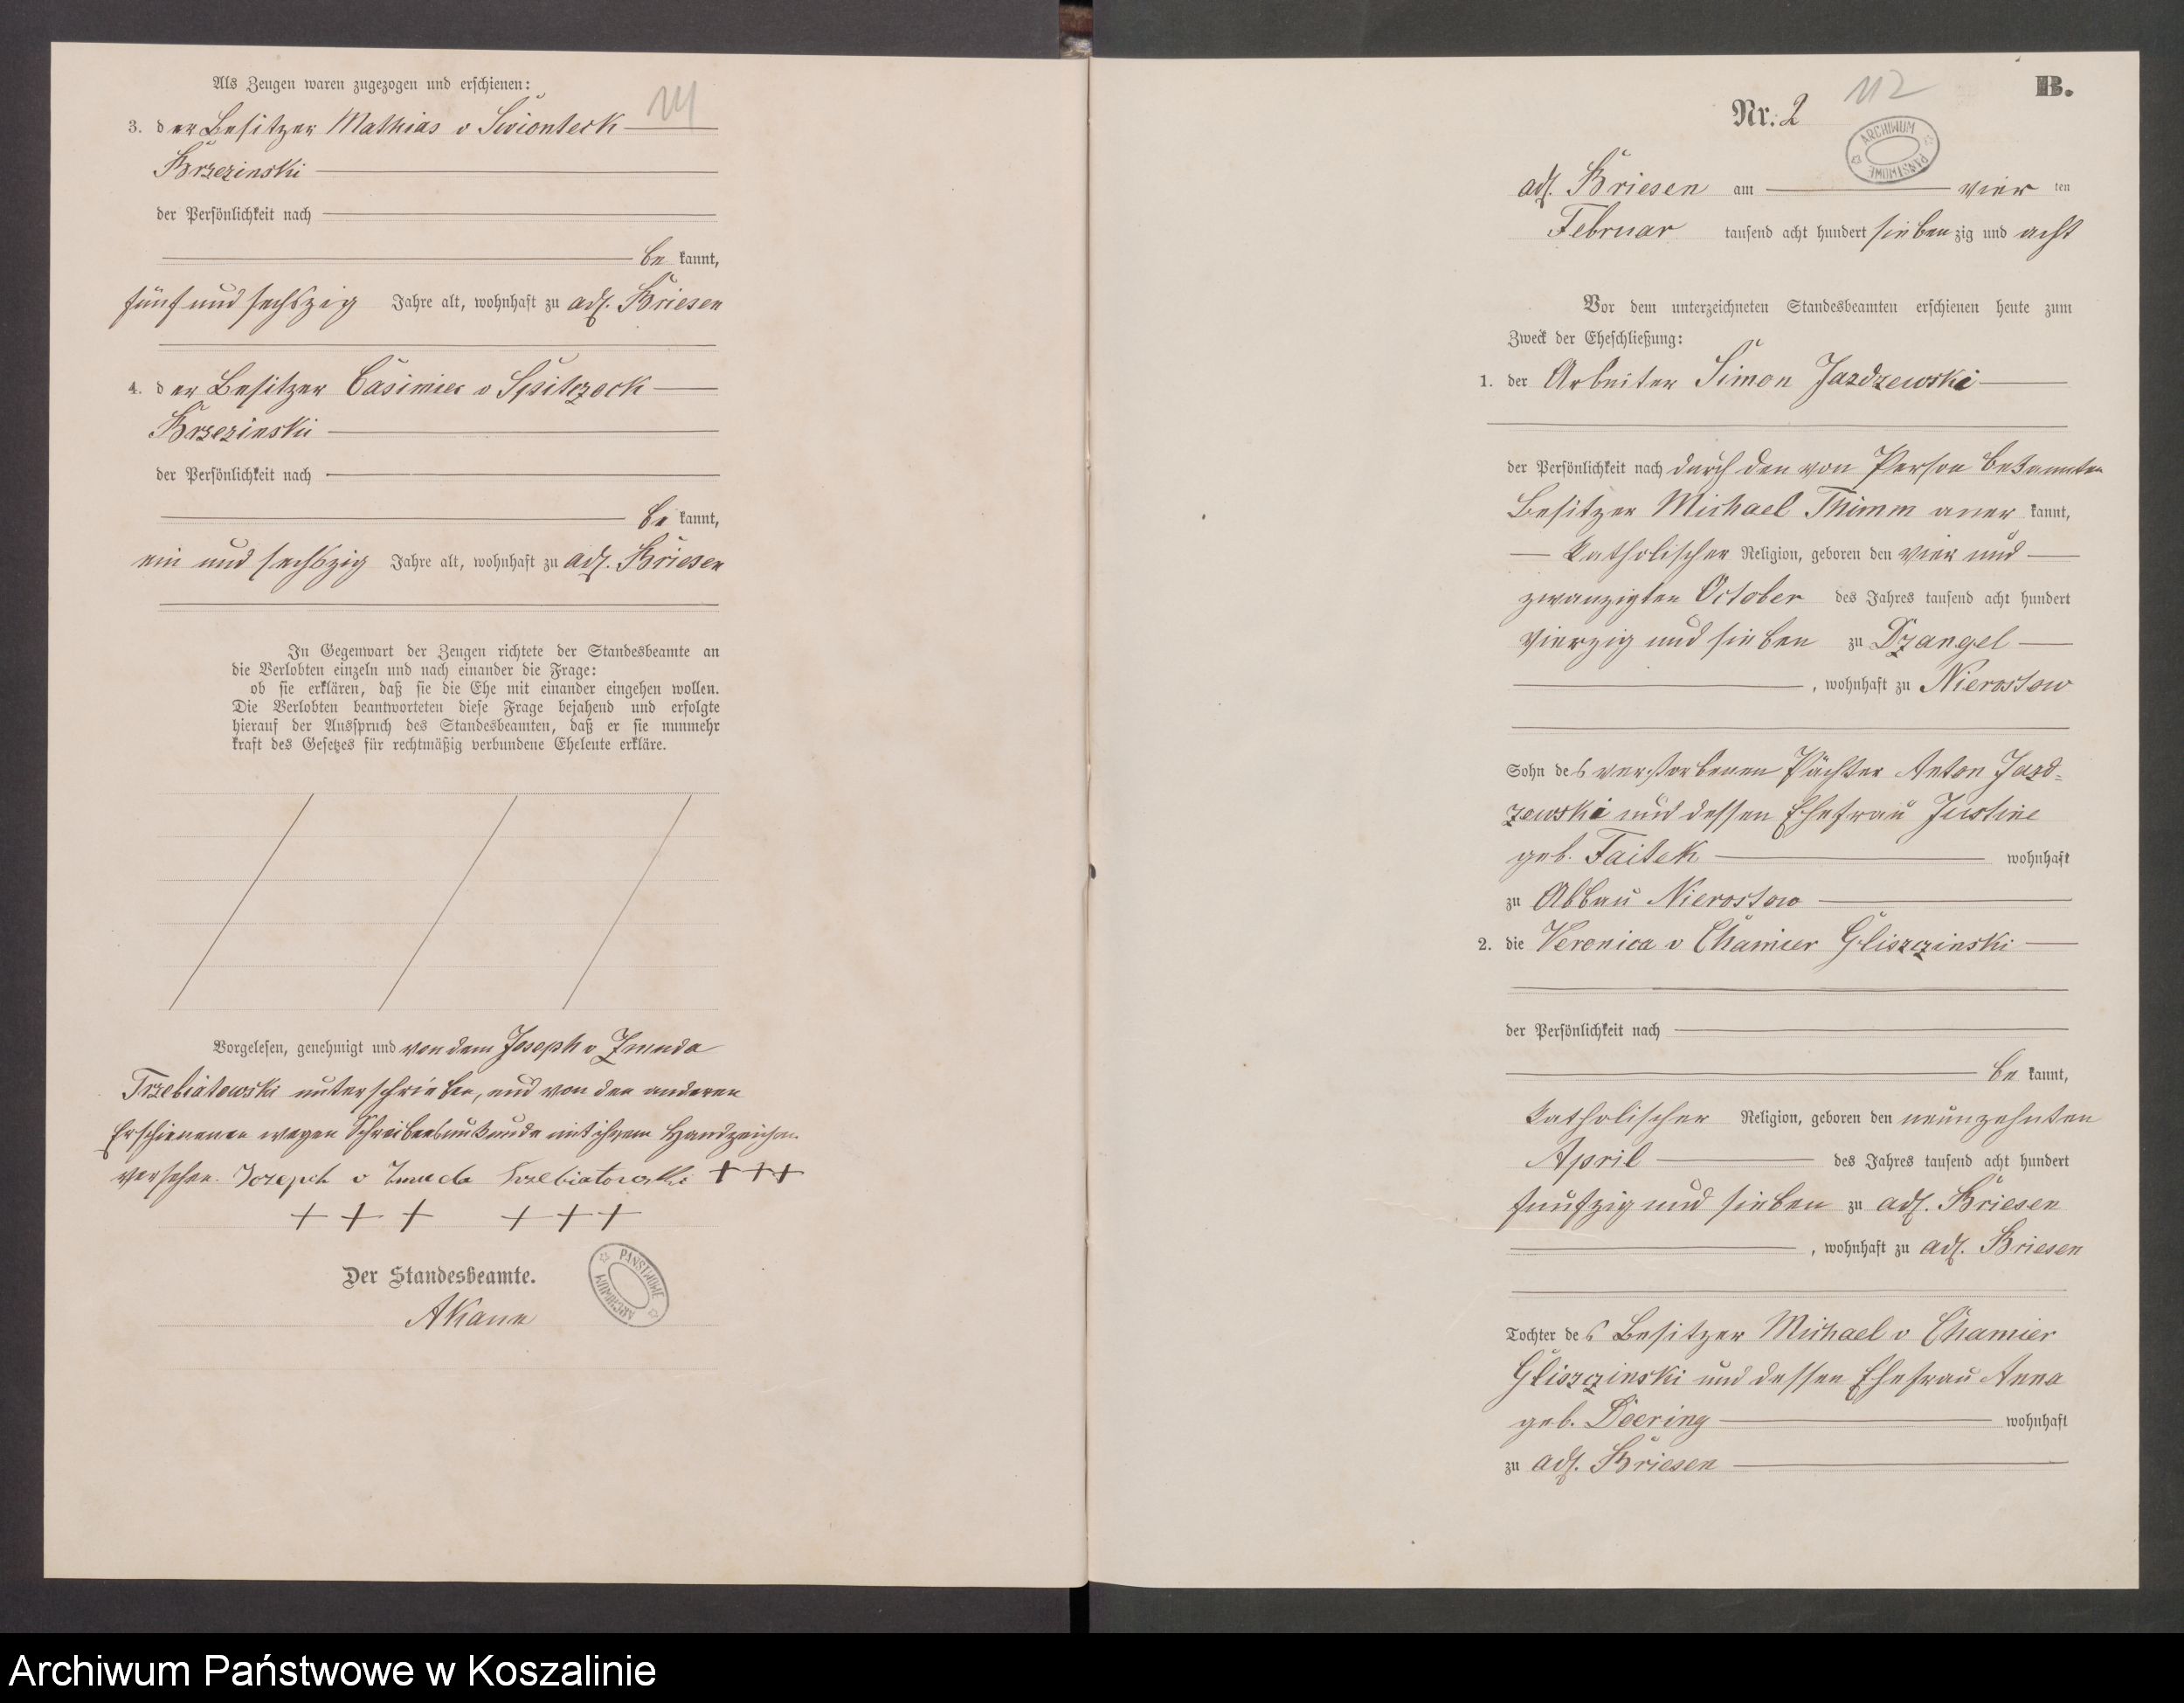 Als Zeugen waren zugezogen und erschienen:
111
3. der Besitzer Mathias v Swionteck
Brzezinski
der Persönlichkeit nach
be kannt,
fünf und sechszig Jahre alt, wohnhaft zu adl. Briesen
4. der Besitzer Casimier v Spitczock
Brzezinski
der Persönlichkeit nach
be kannt,
ein und sechszig Jahre alt, wohnhaft zu adl. Briesen
In Gegenwart der Zeugen richtete der Standesbeamte an
die Verlobten einzeln und nach einander die Frage:
ob sie erklären, daß sie die Ehe mit einander eingehen wollen.
Die Verlobten beantworteten diese Frage bejahend und erfolgte
hierauf der Ausspruch des Standesbeamten, daß er sie nunmehr
kraft des Gesetzes für rechtmäßig verbundene Eheleute erkläre.
Vorgelesen, genehmigt und von dem Joseph v Zmuda
Trzebiatowski unterschrieben, und von den anderen
Erschienenen wegen Schreibensunkunde mit ihrem Handzeichen
versehen. Jozeph v Zmuda Trzebiatowski +++
+ + + + + +
Der Standesbeamte.
AKann
PAŃSTWOWE ARCHIWUM
B.
Nr. 2
112
ARCHIWUM PAŃSTWOWE
adl. Briesen am vier ten
Februar tausend acht hundert siebenzig und acht
Vor dem unterzeichneten Standesbeamten erschienen heute zum
Zweck der Eheschließung:
1. der Arbeiter Simon Jazdzewski
der Persönlichkeit nach durch den von Person bekannten
Besitzer Michael Thimm aner kannt,
katholischer Religion, geboren den vier und
zwanzigten October des Jahres tausend acht hundert
vierzig und sieben zu Dzangel
, wohnhaft zu Nierostow
Sohn des verstorbenen Pächter Anton Jazd-
zewski und dessen Ehefrau Justine
geb. Faitek wohnhaft
zu Abbau Nierostow
2. die Veronica v Chamier Gliszczinski
der Persönlichkeit nach
be kannt,
katholischer Religion, geboren den neunzehnten
April des Jahres tausend acht hundert
funfzig und sieben zu adl. Briesen
, wohnhaft zu adl. Briesen
Tochter des Besitzer Michael v Chamier
Gliszczinski und dessen Ehefrau Anna
geb. Doering wohnhaft
zu adl. Briesen
Archiwum Państwowe w Koszalinie